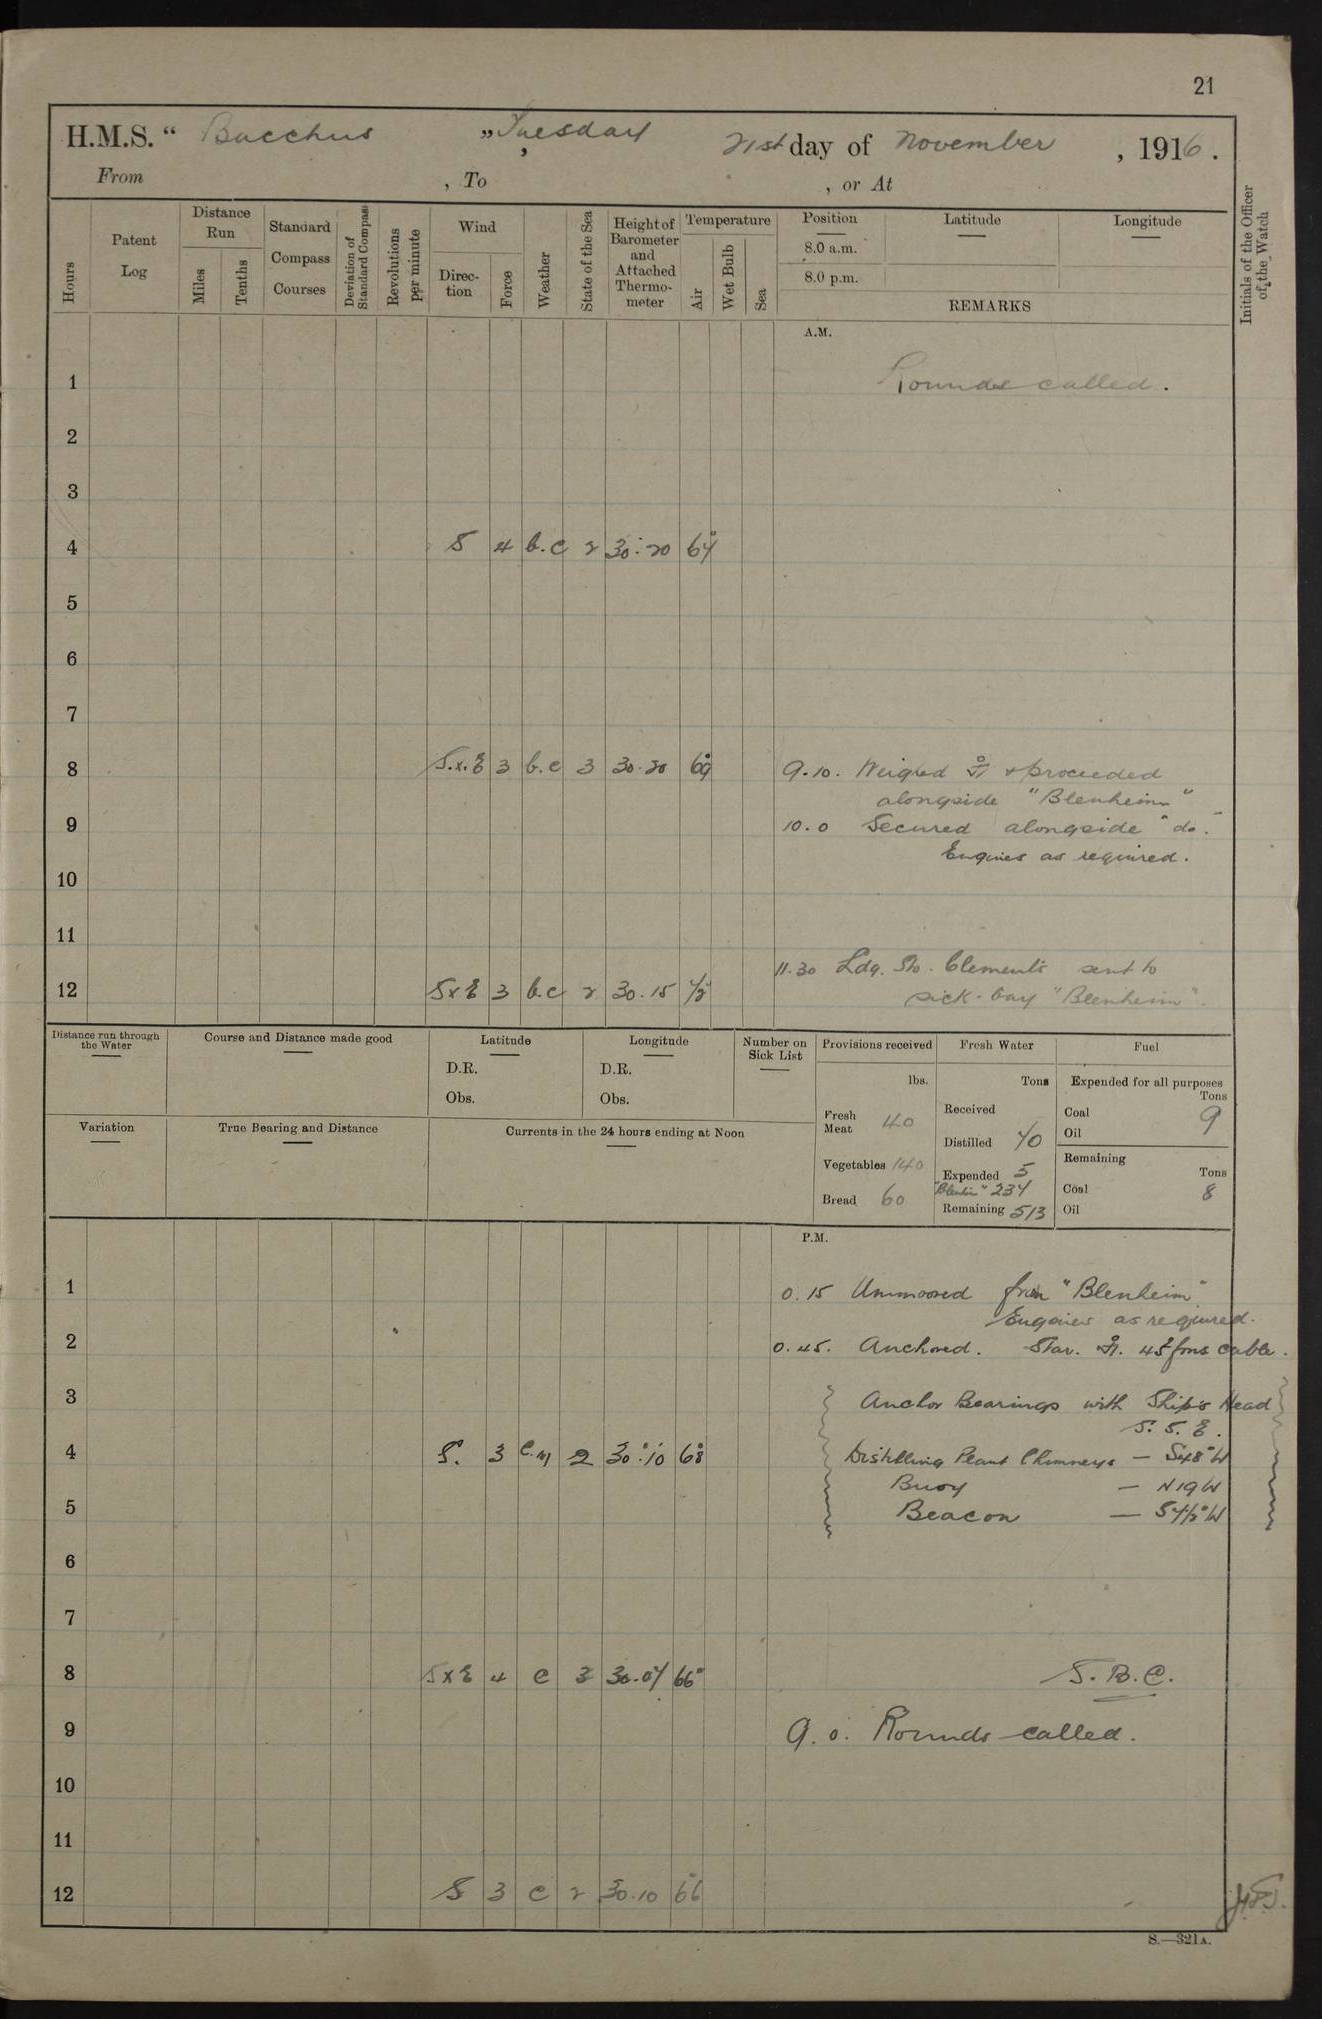 21
H.M.S. " Bacchus " Tuesday, 21st day of November, 1916.
From , To , or At
Hours
Patent Log
Distance Run
Miles
Tenths
Standard Compass Courses
Deviation of Standard Compass
Revolutions per minute
Wind
Direction
Force
Weather
State of the Sea
Height of Barometer and Attached Thermometer
Temperature
Air
Wet Bulb
Sea
Position
8.0 a.m.
8.0 p.m.
Latitude
Longitude
REMARKS
Initials of the Officer of the Watch
A.M.
1 Rounds called.
2
3
4 S 4 b.c 2 30.20 67
5
6
7
8 S.x.E 3 b.c 3 30.20 69 9.10. Weighed & proceeded
alongside "Blenheim"
9 10.0 Secured alongside "do."
Engines as required.
10
11
11.30 Ldg. Sto. Clements sent to
12 SxE 3 b.c 2 30.15 72 sick-bay "Blenheim".
Distance run through the Water
Course and Distance made good
Latitude
D.R.
Obs.
Longitude
D.R.
Obs.
Number on Sick List
Provisions received
lbs.
Fresh Meat 40
Vegetables 140
Bread 60
Fresh Water
Tons
Received
Distilled 70
Expended 5
"Blenhm" 237
Remaining 513
Fuel
Expended for all purposes
Tons
Coal 9
Oil
Remaining
Tons
Coal 8
Oil
Variation
True Bearing and Distance
Currents in the 24 hours ending at Noon
P.M.
1 0.15 Unmoored from "Blenheim"
Engines as required.
2 0.45. Anchored. Star. 45 fms cable.
3 Anchor Bearings with Ship's Head
S.S.E.
4 S. 3 c.m 2 30.10 68 Distilling Plant Chimneys — S48°W
Buoy — N19W
5 Beacon — S72°W
6
7
8 SxE 4 c 3 30.07 66° S.B.C.
9 9.0. Rounds called.
10
11
12 S 3 c 2 30.10 66
S.—321A.